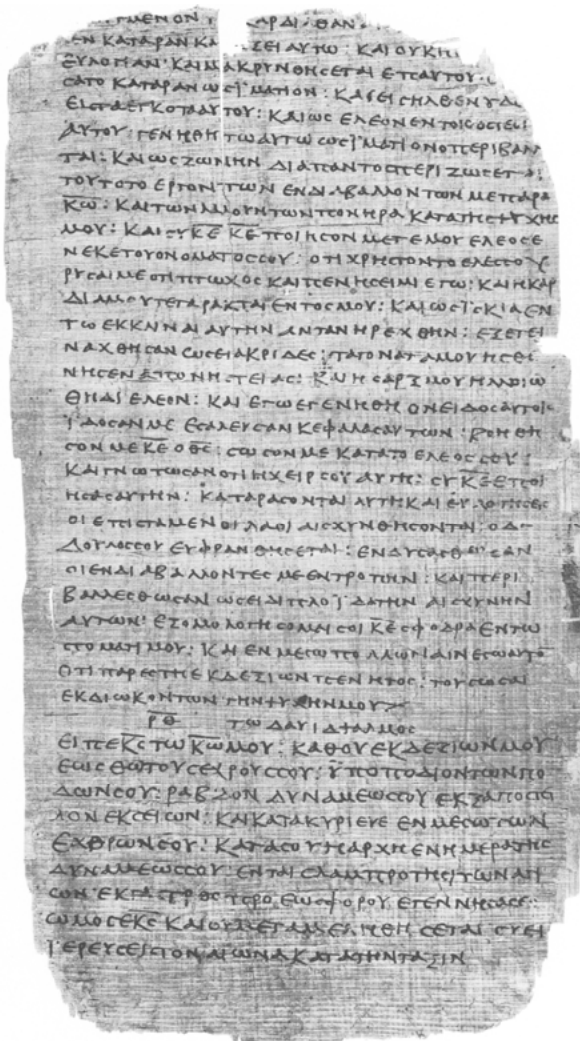 ΓΜΕΝΟΝ Τ ΑΡΔΙ ΘΑΝ
ΕΝ ΚΑΤΑΡΑΝ ΚΑ ΞΕΙ ΑΥΤΩ : ΚΑΙ ΟΥΚ Η
ΕΥΛΟΓΙΑΝ ΚΑΙ ΜΑΚΡΥΝΘΗϹΕΤΑΙ ΕΠ ΑΥΤΟΥ
ϹΑΤΟ ΚΑΤΑΡΑΝ ΩϹ ΪΜΑΤΙΟΝ : ΚΑΙ ΕΙϹΗΛΘΕΝ ΥΔΩ
ΕΙϹ ΤΑ ΕΓΚΟΤΑ ΑΥΤΟΥ : ΚΑΙ ΩϹ ΕΛΕΟΝ ΕΝ ΤΟΙϹ ΟϹΤΕΟΙ
ΑΥΤΟΥ : ΓΕΝΗΘΗΤΩ ΑΥΤΩ ΩϹ ΪΜΑΤΙΟΝ Ο ΠΕΡΙΒΑΛ
ΤΑΙ : ΚΑΙ ΩϹ ΖΩΝΗΝ ΔΙΑ ΠΑΝΤΟϹ ΠΕΡΙΖΩϹΕΤΑΙ
ΤΟΥΤΟ ΤΟ ΕΡΓΟΝ ΤΩΝ ΕΝΔΙΑΒΑΛΛΟΝΤΩΝ ΜΕ ΠΑΡΑ
Κ̅Ω̅ : ΚΑΙ ΤΩΝ ΛΑΛΟΥΝΤΩΝ ΠΟΝΗΡΑ ΚΑΤΑ ΤΗϹ ΨΥΧΗϹ
ΜΟΥ : ΚΑΙ ϹΥ Κ̅Ε̅ Κ̅Ε̅ ΠΟΙΗϹΟΝ ΜΕΤ ΕΜΟΥ ΕΛΕΟϹ Ε
ΝΕΚΕ ΤΟΥ ΟΝΟΜΑΤΟϹ ϹΟΥ : ΟΤΙ ΧΡΗϹΤΟΝ ΤΟ ΕΛΕΟϹ ϹΟΥ
ΡΥϹΑΙ ΜΕ ΟΤΙ ΠΤΩΧΟϹ ΚΑΙ ΠΕΝΗϹ ΕΙΜΙ ΕΓΩ : ΚΑΙ Η ΚΑΡ
ΔΙΑ ΜΟΥ ΤΕΤΑΡΑΚΤΑΙ ΕΝΤΟϹ ΜΟΥ : ΚΑΙ ΩϹΪ ϹΚΙΑ ΕΝ
ΤΩ ΕΚΚΛΙΝΑΙ ΑΥΤΗΝ ΑΝΤΑΝΗΡΕΧΘΗΝ : ΕΞΕΤΕΙ
ΝΑΧΘΗϹΑΝ ΩϹΕΙ ΑΚΡΙΔΕϹ : ΤΑ ΓΟΝΑΤΑ ΜΟΥ ΗϹΘΕ
ΝΗϹΕΝ ΑΠΟ ΝΗϹΤΕΙΑϹ : Κ Η ϹΑΡΞ ΜΟΥ ΗΛΛΟΙΩ
ΘΗ ΔΙ ΕΛΕΟΝ : ΚΑΙ ΕΓΩ ΕΓΕΝΗΘΗ ΟΝΕΙΔΟϹ ΑΥΤΟΙϹ
ΪΔΟϹΑΝ ΜΕ ΕϹΑΛΕΥϹΑΝ ΚΕΦΑΛΑϹ ΑΥΤΩΝ : ΒΟΗΘΗ
ϹΟΝ ΜΕ Κ̅Ε̅ Ο Θ̅Ϲ̅ : ϹΩϹΟΝ ΜΕ ΚΑΤΑ ΤΟ ΕΛΕΟϹ ϹΟΥ :
ΚΑΙ ΓΝΩΤΩϹΑΝ ΟΤΙ Η ΧΕΙΡ ϹΟΥ ΑΥΤΗ : ϹΥ Κ̅Ε̅ ΕΠΟΙ
ΗϹΑϹ ΑΥΤΗΝ : ΚΑΤΑΡΑϹΟΝΤΑΙ ΑΥΤΗ ΚΑΙ ϹΥ ΕΥΛΟΓΗϹΕΙϹ
ΟΙ ΕΠΙϹΤΑΜΕΝΟΙ ΛΑΟΙ ΑΙϹΧΥΝΘΗϹΟΝΤΑΙ : Ο ΔΕ
ΔΟΥΛΟϹ ϹΟΥ ΕΥΦΡΑΝΘΗϹΕΤΑΙ : ΕΝΔΥϹΑϹΘΩϹΑΝ
ΟΙ ΕΝΔΙΑΒΑΛΛΟΝΤΕϹ ΜΕ ΕΝΤΡΟΠΗΝ : ΚΑΙ ΠΕΡΙ
ΒΑΛΛΕϹΘΩϹΑΝ ΩϹΕΙ ΔΙΠΛΟΪΔΑ ΤΗΝ ΑΙϹΧΥΝΗΝ
ΑΥΤΩΝ : ΕΞΟΜΟΛΟΓΗϹΟΜΑΙ ϹΟΙ Κ̅Ε̅ ϹΦΟΔΡΑ ΕΝ ΤΩ
ϹΤΟΜΑΤΙ ΜΟΥ : ΚΑΙ ΕΝ ΜΕϹΩ ΠΟΛΛΩΝ ΑΙΝΕϹΩ ΑΥΤΟ
ΟΤΙ ΠΑΡΕϹΤΗ ΕΚ ΔΕΞΙΩΝ ΠΕΝΗΤΟϹ : ΤΟΥ ϹΩϹΑΙ
ΕΚ ΔΙΩΚΟΝΤΩΝ ΤΗΝ ΨΥΧΗΝ ΜΟΥ
Ρ̅Θ̅ ΤΩ ΔΑΥΙΔ ΨΑΛΜΟϹ
ΕΙΠΕ Κ̅Ϲ̅ ΤΩ Κ̅Ω̅ ΜΟΥ : ΚΑΘΟΥ ΕΚ ΔΕΞΙΩΝ ΜΟΥ
ΕΩϹ ΘΩ ΤΟΥϹ ΕΧΡΟΥϹ ϹΟΥ : ΫΠΟΠΟΔΙΟΝ ΤΩΝ ΠΟ
ΔΩΝ ϹΟΥ : ΡΑΒΔΟΝ ΔΥΝΑΜΕΩϹ ϹΟΥ ΕΞΑΠΟϹΤΕ
ΛΟΝ ΕΚ ϹΕΙΩΝ : ΚΑΙ ΚΑΤΑΚΥΡΙΕΥΕ ΕΝ ΜΕϹΩ ΤΩΝ
ΕΧΘΡΩΝ ϹΟΥ : ΚΑΤΑ ϹΟΥ Η ΑΡΧΗ ΕΝ ΗΜΕΡΑ ΤΗϹ
ΔΥΝΑΜΕΩϹ ϹΟΥ : ΕΝ ΤΑΙϹ ΛΑΜΠΡΟΤΗϹΙ ΤΩΝ ΑΓΙ
ΩΝ ΕΚ ΓΑϹΤΡΟϹ ΠΡΟ ΕΩϹΦΟΡΟΥ ΕΓΕΝΝΗϹΑ ϹΕ :
ΩΜΟϹΕ Κ̅Ϲ̅ ΚΑΙ ΟΥ ΜΕΤΑΜΕΛΗΘΗϹΕΤΑΙ ϹΥ ΕΙ
ΪΕΡΕΥϹ ΕΙϹ ΤΟΝ ΑΙΩΝΑ ΚΑΤΑ ΤΗΝ ΤΑΞΙΝ